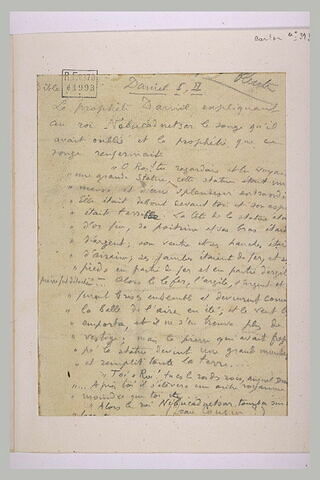 Daniel
Bible
Le prophète Daniel expliquant
au roi Nebucadnetsar le songe qu'il
avait oublié et la prophétie que ce
songe renfermait
" O Roi, tu regardais et tu voyais
" une grande statue; cette statue était im
" mense et d'une splendeur extraordi
" Elle était debout devant toi et son asp
" était terrible. La tête de la statue éta
" d'or pur, sa poitrine et ses bras étai
" d'argent; son ventre et ses hanches étai
" d'airain; ses jambes étaient de fer, et s
" pieds en partie de fer et en partie d'argile
Alors le fer, l'argile, l'argent et
furent brisés ensemble et devinrent comm
la balle de l'aire en été; et le vent l
emporta, et il ne s'en trouva plus de
vestige; mais la pierre qui avait frap
pé la statue devint une grande monta
et remplit toute la terre...
" Toi ô Roi! tu es le roi des rois,
" ... Après toi il s'élèvera un autre royaume
moindre que toi
" Alors le roi Nebucadnetsar tomba sur